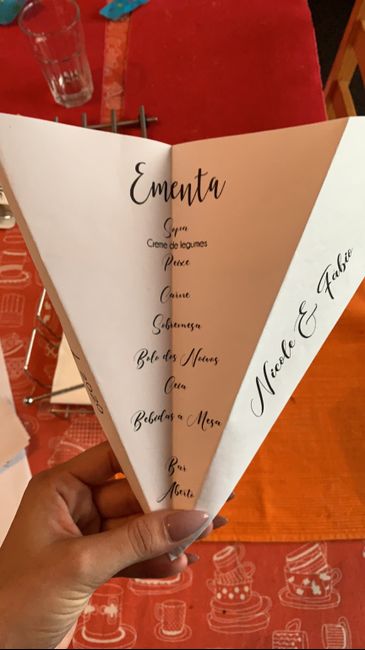 Ementa
Sopa
Creme de legumes
Peixe
Carne
Sobremesa
Bolo dos Noivos
Ceia
Bebidas a Mesa
Bar
Aberto
Nicole & Fabio